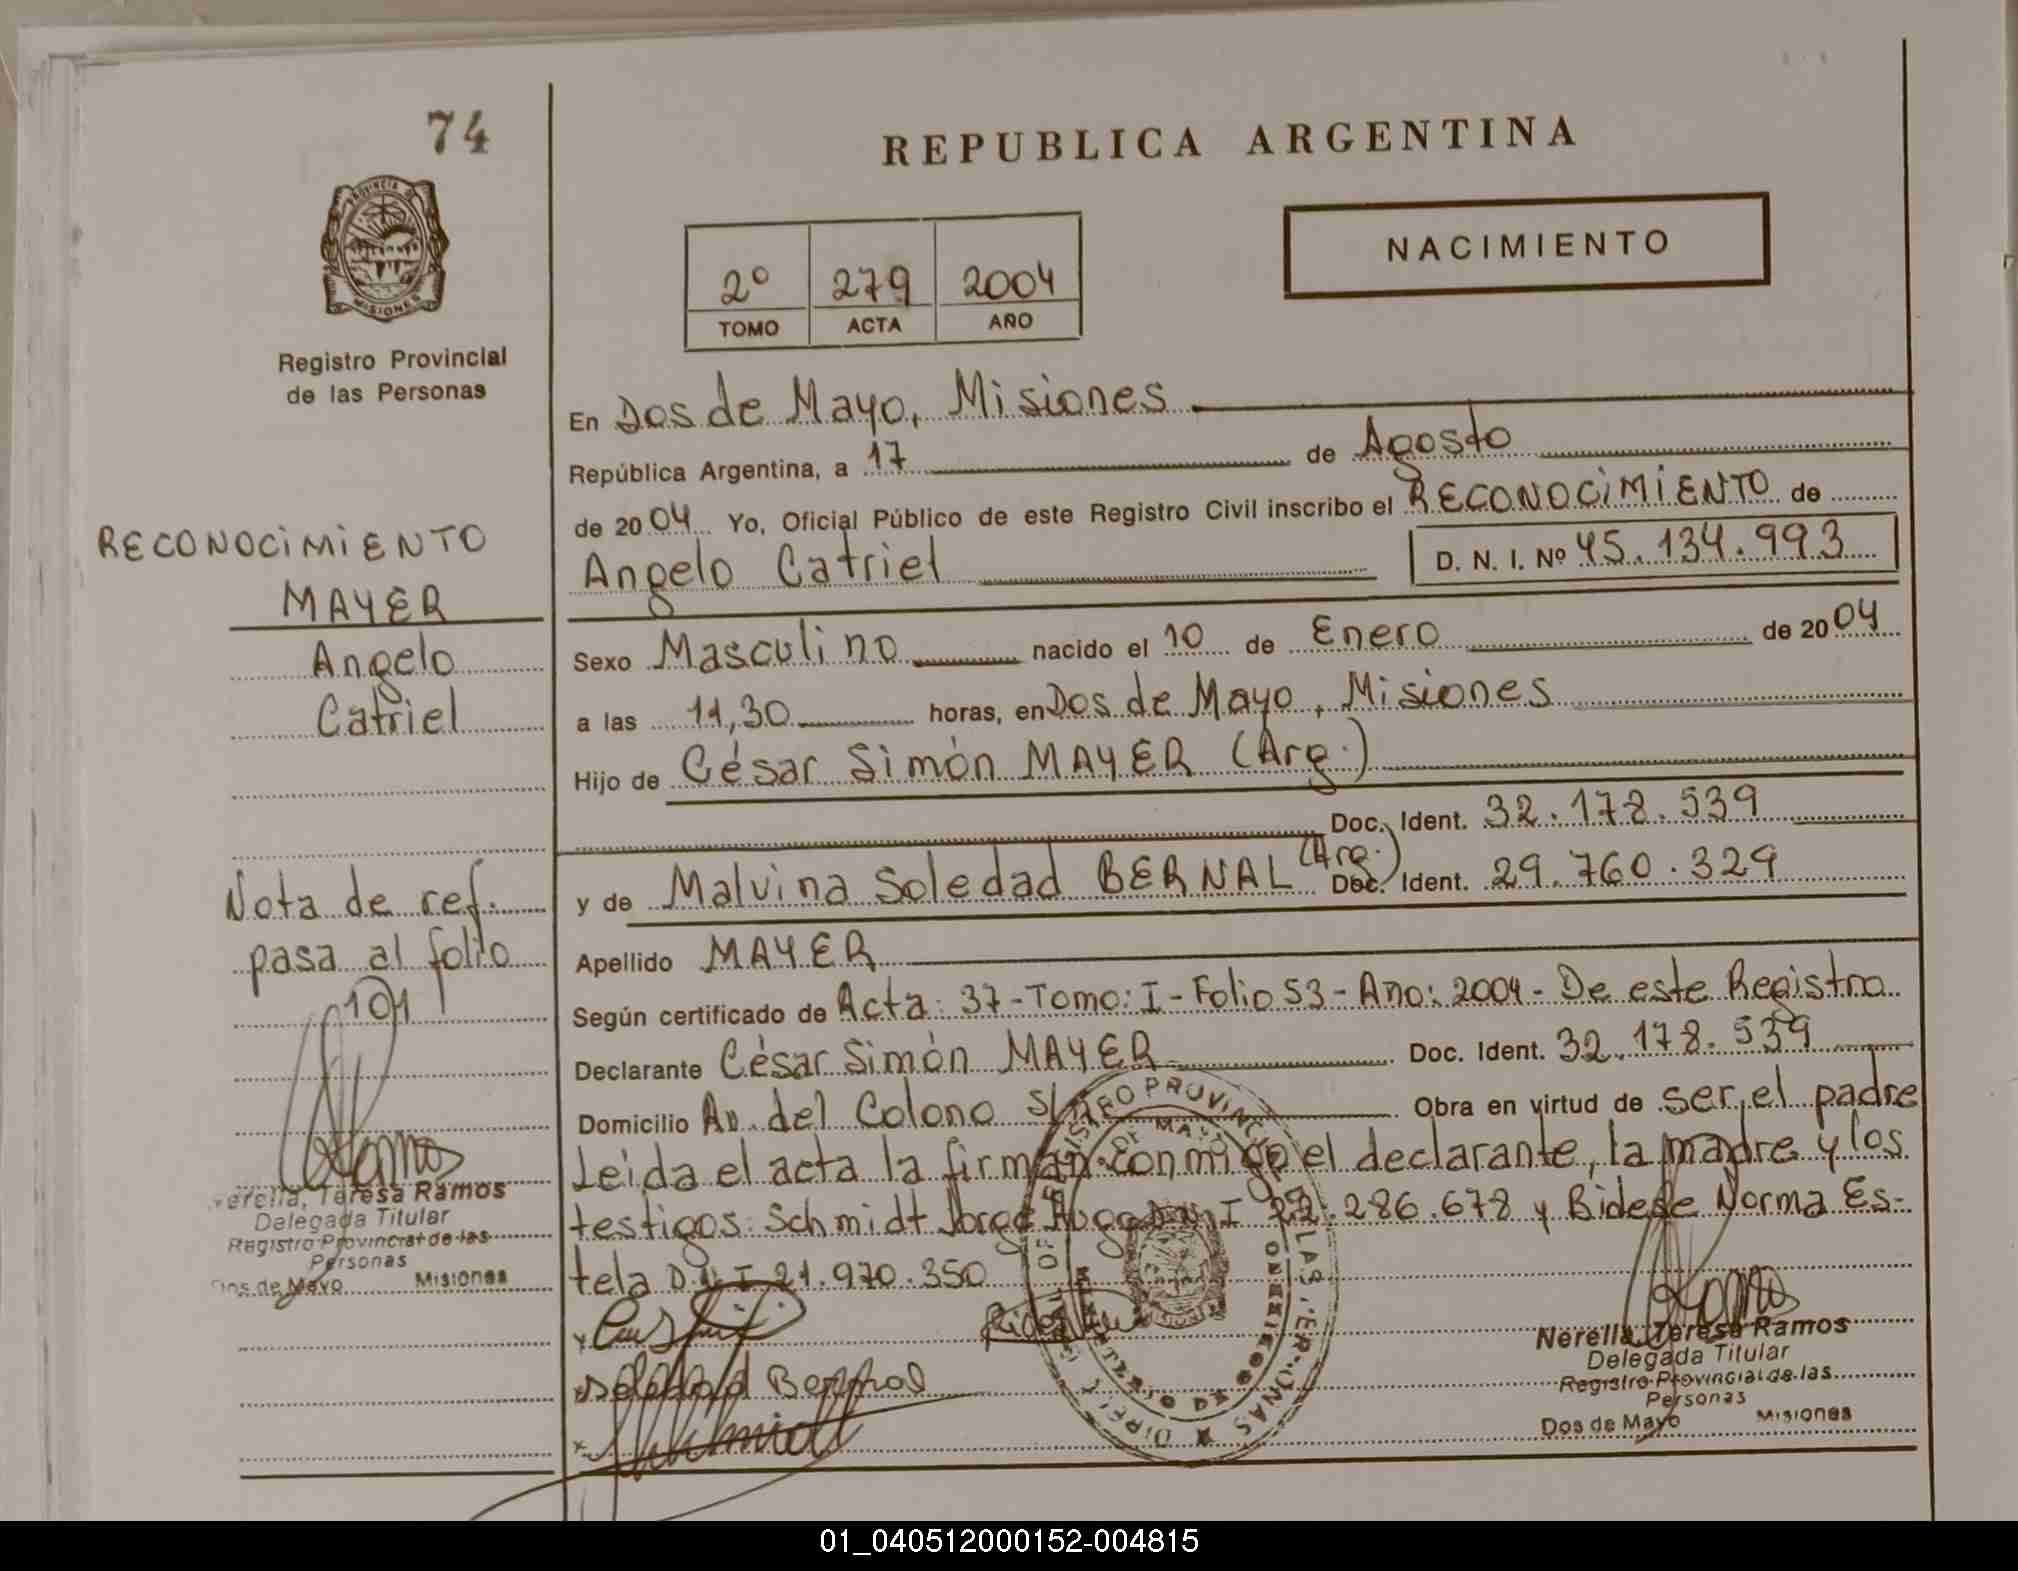 74
REPUBLICA ARGENTINA
NACIMIENTO
2º 279 2004
TOMO ACTA AÑO
PROVINCIA DE
MISIONES
Registro Provincial
de las Personas
En Dos de Mayo, Misiones
República Argentina, a 17 de Agosto
de 2004 Yo, Oficial Público de este Registro Civil inscribo el RECONOCIMIENTO de
Angelo Catriel D. N. I. Nº 45.134.993
Sexo Masculino nacido el 10 de Enero de 2004
a las 11,30 horas, en Dos de Mayo, Misiones
Hijo de César Simón MAYER (Arg.)
Doc. Ident. 32.178.539
y de Malvina Soledad BERNAL (Arg.) Doc. Ident. 29.760.329
Apellido MAYER
Según certificado de Acta: 37-Tomo: I-Folio 53-Año: 2004-De este Registro
Declarante César Simón MAYER Doc. Ident. 32.178.539
Domicilio Av. del Colono Obra en virtud de ser el padre
Leida el acta la firman conmigo el declarante, la madre y los
testigos: Schmidt Jorge Hugo D.N.I 22.286.678 y Bidese Norma Es-
tela D.N.I 21.970.350
Soledad Bernal
Schmidt
Nerella, Teresa Ramos
Delegada Titular
Registro Provincial de las
Personas
Dos de Mayo Misiones
RECONOCIMIENTO
MAYER
Angelo
Catriel
Nota de ref.
pasa al folio
101
Nerella, Teresa Ramos
Delegada Titular
Registro Provincial de las
Personas
Dos de Mayo Misiones
01_040512000152-004815